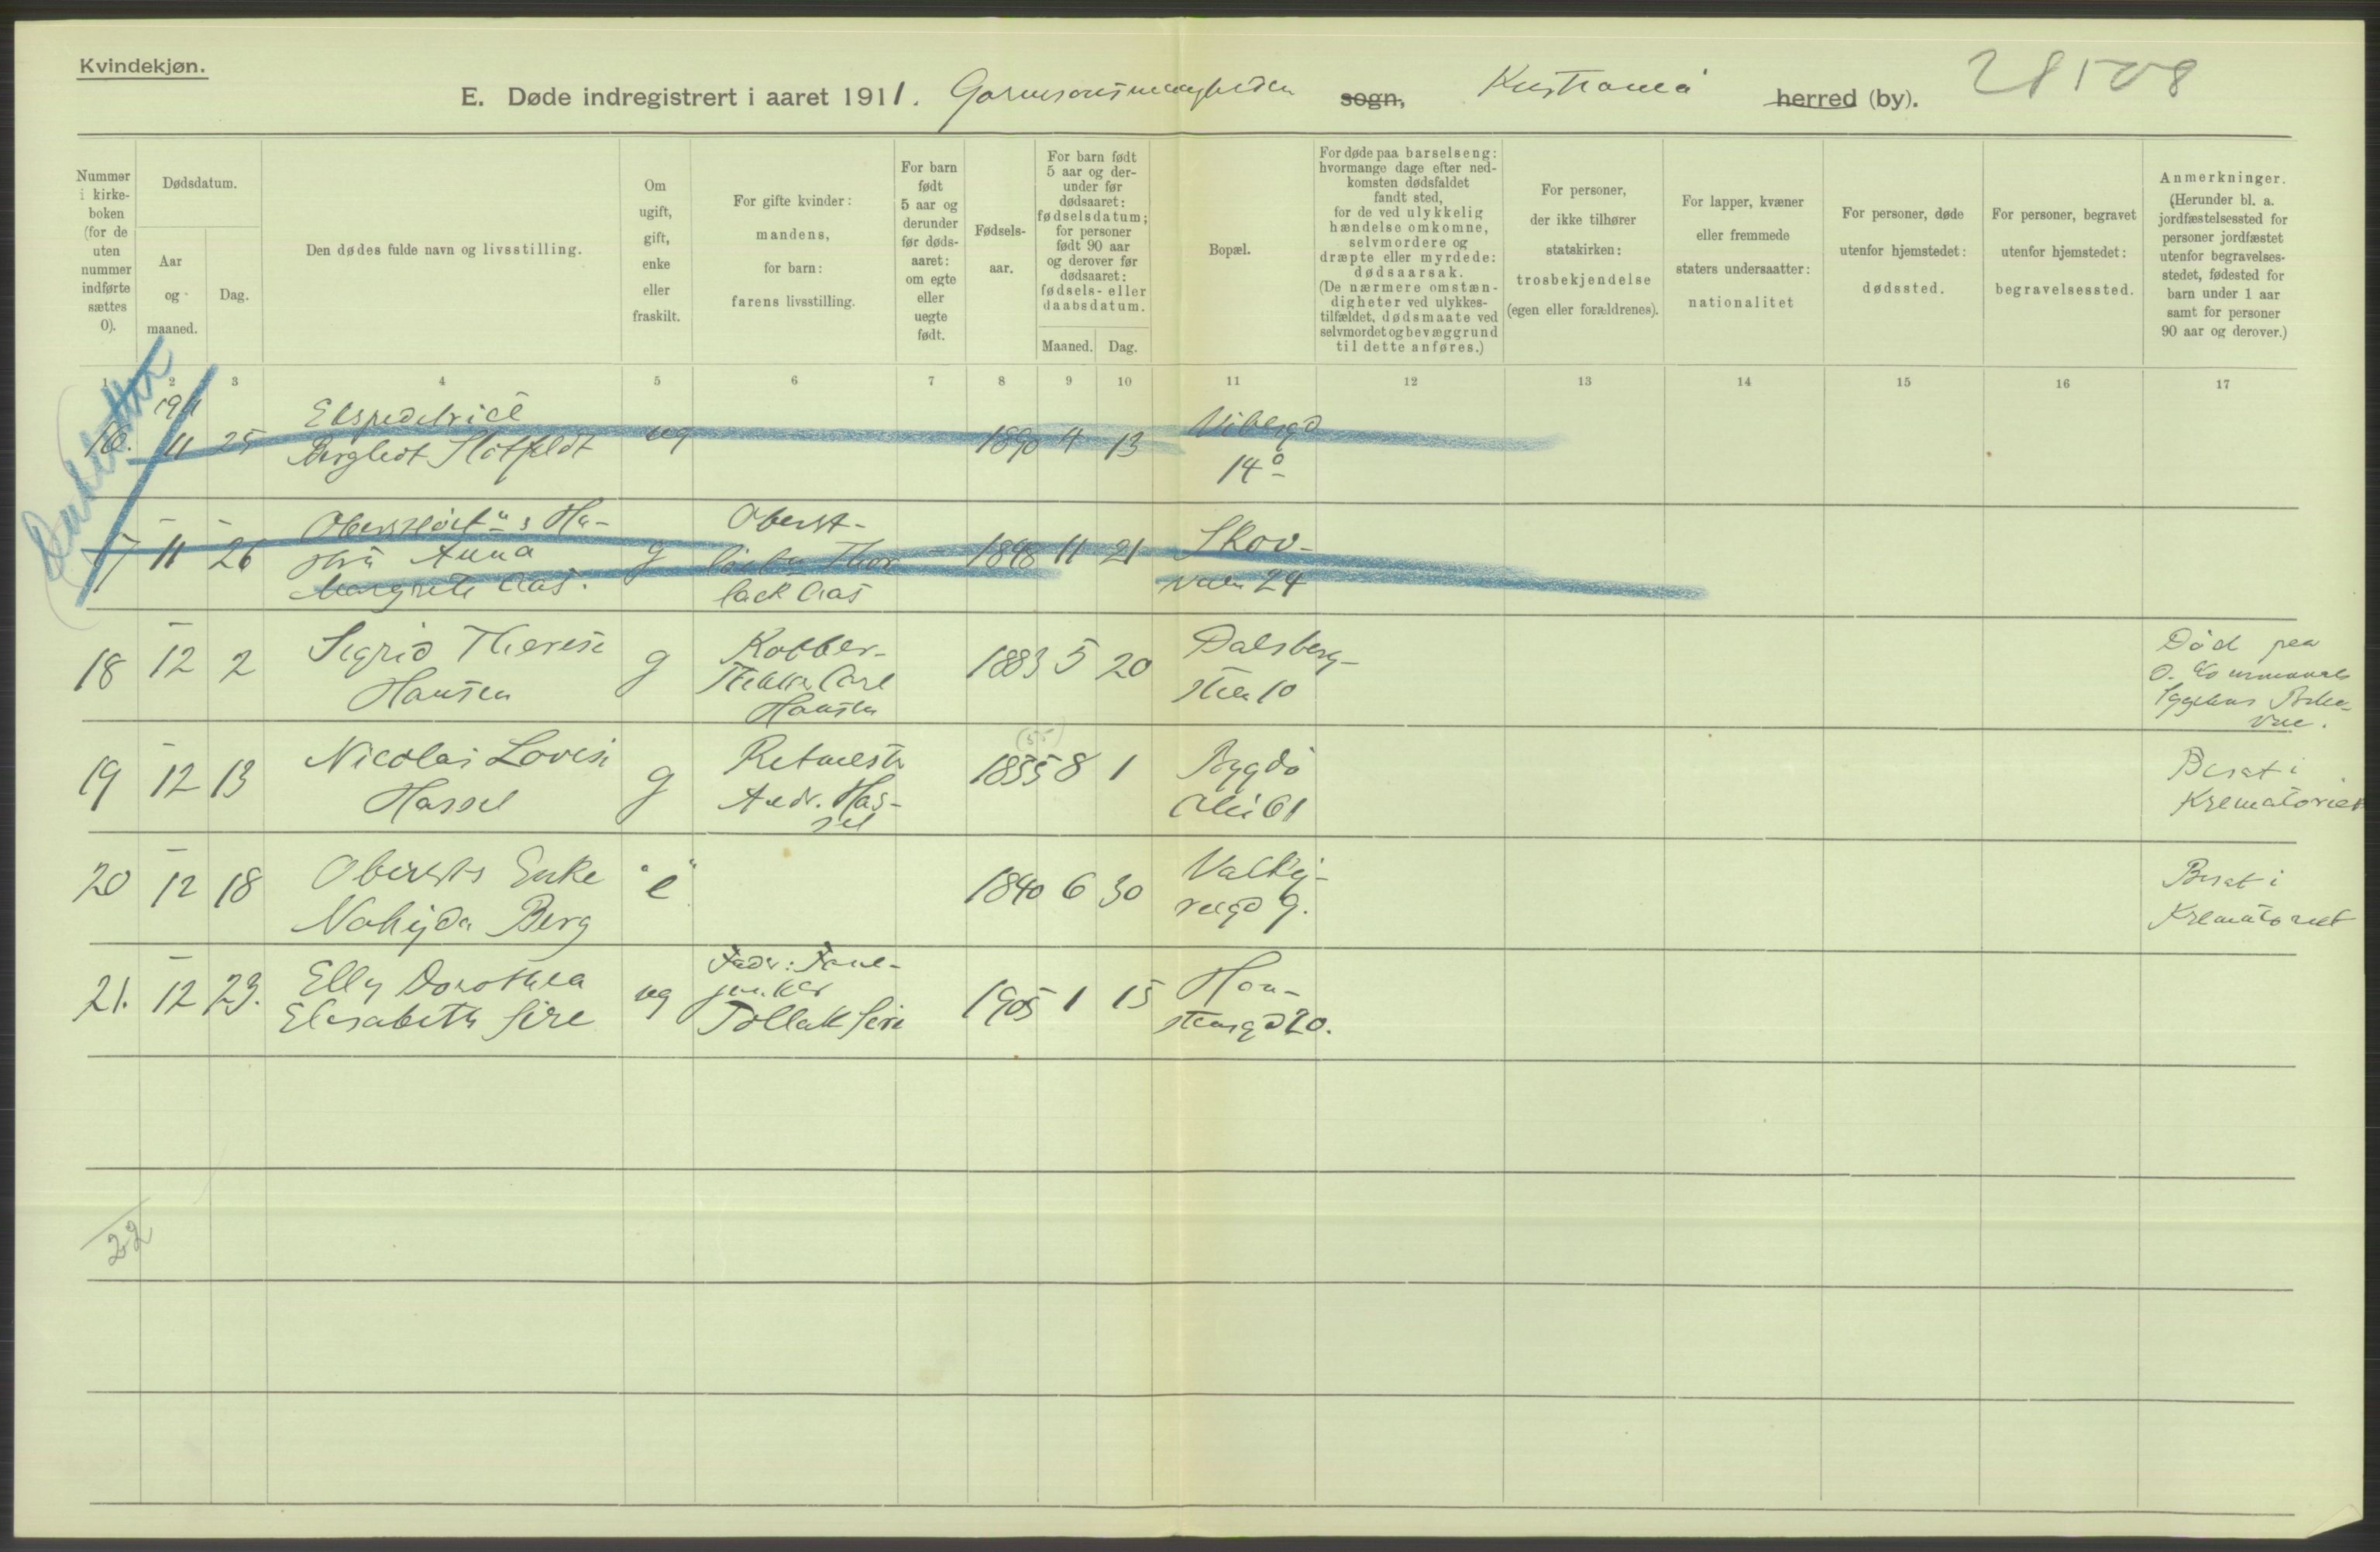 Kvindekjøn.
E. Døde indregistrert i aaret 1911. Garnisonsmenigheden sogn, Kristiania herred (by). 28508
Nummer i kirke-boken (for de uten nummer indførte sættes 0).
Dødsdatum.
Aar og maaned.
Dag.
Den dødes fulde navn og livsstilling.
Om ugift, gift, enke eller fraskilt.
For gifte kvinder: mandens, for barn: farens livsstilling.
For barn født 5 aar og derunder før døds-aaret: om egte eller uegte født.
Fødsels-aar.
For barn født 5 aar og der-under før dødsaaret: fødselsdatum; for personer født 90 aar og derover før dødsaaret: fødsels- eller daabsdatum.
Maaned. Dag.
Bopæl.
For døde paa barselseng: hvormange dage efter ned-komsten dødsfaldet fandt sted, for de ved ulykkelig hændelse omkomne, selvmordere og dræpte eller myrdede: dødsaarsak. (De nærmere omstæn-digheter ved ulykkes-tilfældet, dødsmaate ved selvmordet og bevæggrund til dette anføres.)
For personer, der ikke tilhører statskirken: trosbekjendelse (egen eller forældrenes).
For lapper, kvæner eller fremmede staters undersaatter: nationalitet
For personer, døde utenfor hjemstedet: dødssted.
For personer, begravet utenfor hjemstedet: begravelsessted.
Anmerkninger. (Herunder bl. a. jordfæstelsessted for personer jordfæstet utenfor begravelses-stedet, fødested for barn under 1 aar samt for personer 90 aar og derover.)
1 2 3 4 5 6 7 8 9 10 11 12 13 14 15 16 17
1911
16. 11 25 Ekspeditrice Bergliot Slotfeldt ug 1890 4 13 Vibesgd 14
17 – 11 – 26 Hustru Anna Margrete Aas. g Oberst- Aas 1848 11 21 Skov-veien 24
18 – 12 2 Sigrid Therese Hansen g Kobber- Carl Hansen 1883 5 20 Dalsberg-stien 10 Død paa
19 – 12 13 Nicolai Lovise Hassel g Ritmester Andr. Hassel 1855 (55) 8 1 Bygdø Allé 61 Brændt i Krematoriet
20 – 12 18 Obersts Enke Berg "e" 1840 6 30 Valky-riegd 9. Brændt i Krematoriet
21. – 12 23. Elly Dorothea Elisabeth Sire ug Fader: Fane-junker Tollak Sire 1905 1 15 Hon-stensgd 20.
22